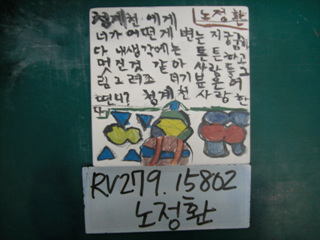 노정환
청계천에게
너가 어떤게 변는지 궁굼하
다 내생각에는 튼튼하고
멋진것 같아 사랑들에
림그려 너기분은 어
떤니? 청계천 사랑한
다
RV279.15802
노정환